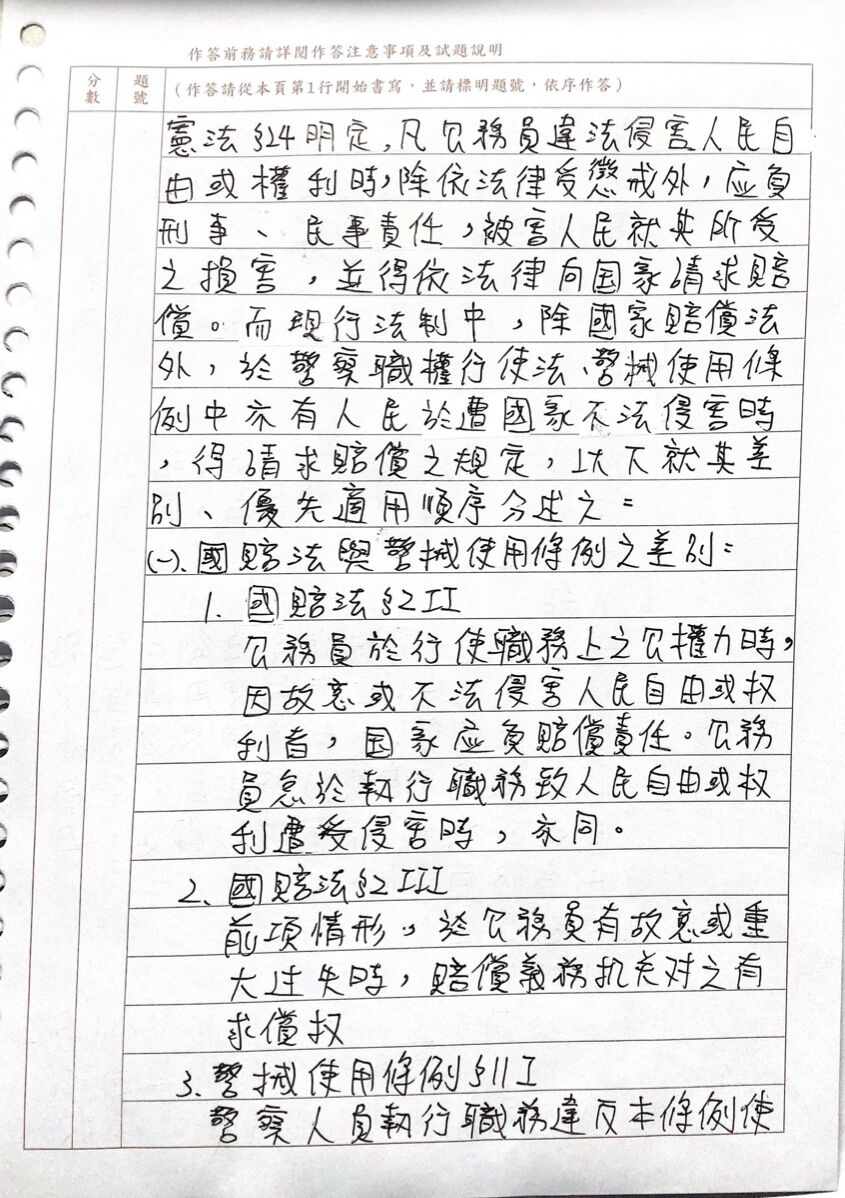 作答前務請詳閱作答注意事項及試題說明
分數 題號 (作答請從本頁第1行開始書寫,並請標明題號,依序作答)
憲法§24明定,凡公務員違法侵害人民自
由或權利時,除依法律受懲戒外,应負
刑事、民事責任,被害人民就其所受
之損害,並得依法律向国家請求賠
償。而現行法制中,除國家賠償法
外,於警察職權行使法、警械使用條
例中亦有人民於遭國家不法侵害時
,得請求賠償之規定,以下就其差
別、優先適用順序分述之:
(一)、國賠法與警械使用條例之差別:
1. 國賠法§2II
公務員於行使職務上之公權力時,
因故意或不法侵害人民自由或权
利者,国家应負賠償責任。公務
員怠於執行職務致人民自由或权
利遭受侵害時,亦同。
2、國賠法§2III
前項情形,於公務員有故意或重
大过失時,賠償義務机关对之有
求償权
3、警械使用條例§11I
警察人員執行職務違反本條例使